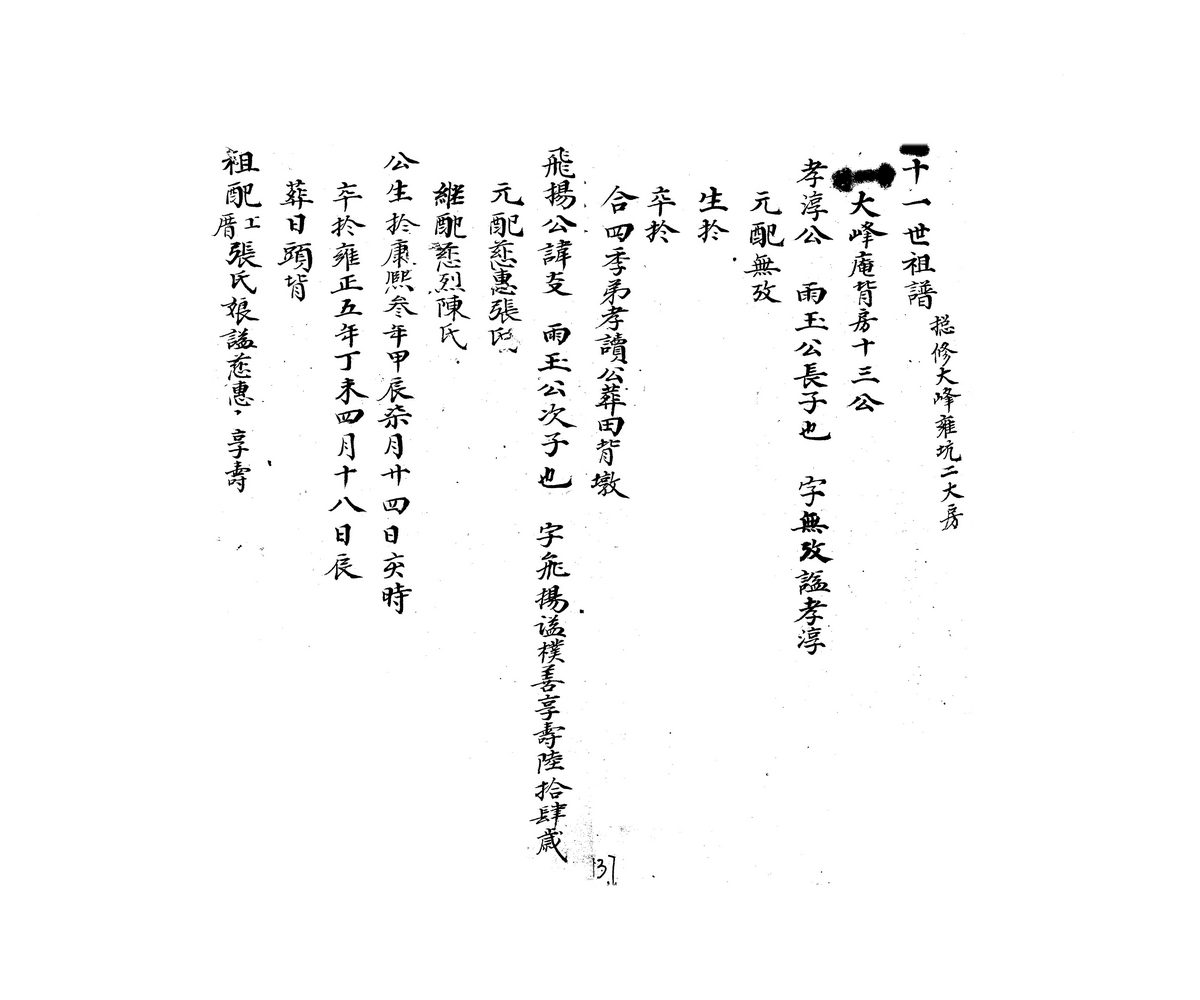 十一世祖譜 捴修大峰雍坑二大房
大峰庵背房十三公
孝淳公 雨玉公長子也 字無攷謚孝淳
元配無攷
生扵
卒扵
合四季弟孝讀公葬田背墩
飛揚公諱支 雨玉公次子也 字飛揚謚樸善享壽陸拾肆歳
元配慈惠張氏
継配慈烈陳氏
公生扵康熙叄年甲辰柒月廿四日亥時
卒扵雍正五年丁未四月十八日辰
葬日頭背
祖配工厝張氏娘謚慈惠 享壽
137